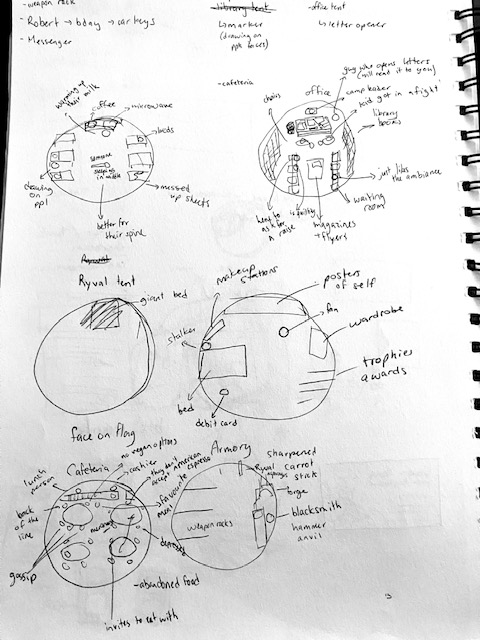 - weapon rack
- Robert → bday → car keys
- Messenger
library tent
↳ marker
(drawing on
ppl faces)
- office tent
↳ letter opener
- cafeteria
warming up
their milk
coffee
microwave
beds
someone
sleeping
in middle
drawing
on
ppl
messed
up sheets
better for
their spine
office
guy who opens letters
(will read it to you)
camp leader
kid got in a fight
library
books
chairs
just likes
the ambiance
waiting
room
magazines
+ flyers
want to
ask for
a raise
Ryval tent
giant bed
makeup
stations
posters
of self
fan
wardrobe
stalker
trophies
awards
bed
debit card
face on flag
Cafeteria
no vegan options
cashier
they don't
accept american
express
lunch
person
favourite
meal
back
of the
line
desserts
gossip
- abandoned food
invites to eat with
Armory
sharpened
carrot
stick
Ryval
forge
blacksmith
hammer
anvil
weapon racks